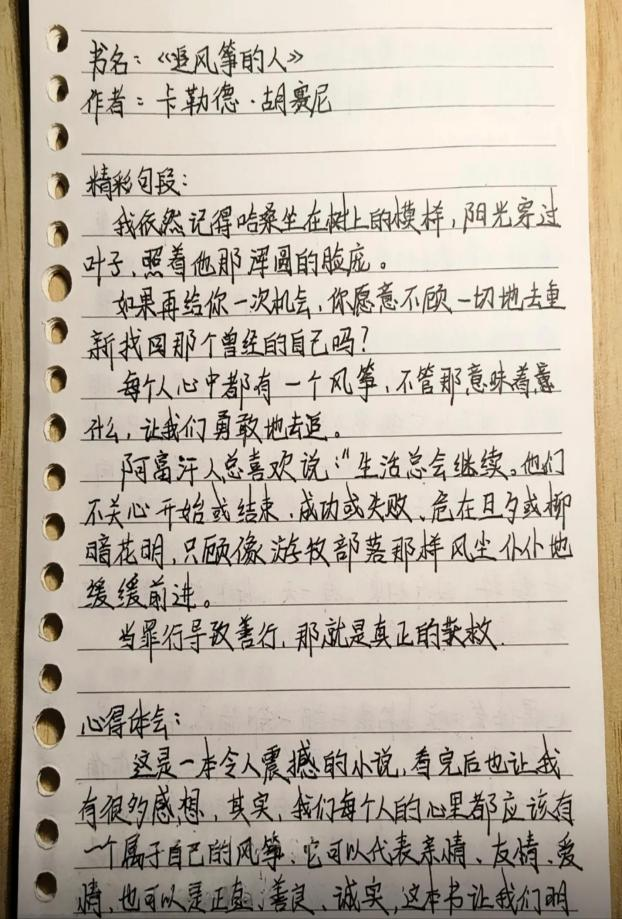 书名：《追风筝的人》
作者：卡勒德·胡赛尼
精彩句段：
我依然记得哈桑坐在树上的模样，阳光穿过
叶子，照着他那浑圆的脸庞。
如果再给你一次机会，你愿意不顾一切地去重
新找回那个曾经的自己吗？
每个人心中都有一个风筝，不管那意味着
什么，让我们勇敢地去追。
阿富汗人总喜欢说："生活总会继续。他们
不关心开始或结束、成功或失败、危在旦夕或柳
暗花明，只顾像游牧部落那样风尘仆仆地
缓缓前进。
当罪行导致善行，那就是真正的获救.
心得体会：
这是一本令人震撼的小说，看完后也让我
有很多感想，其实，我们每个人的心里都应该有
一个属于自己的风筝、它可以代表亲情、友情、爱
情、也可以是正直、善良、诚实，这本书让我们明